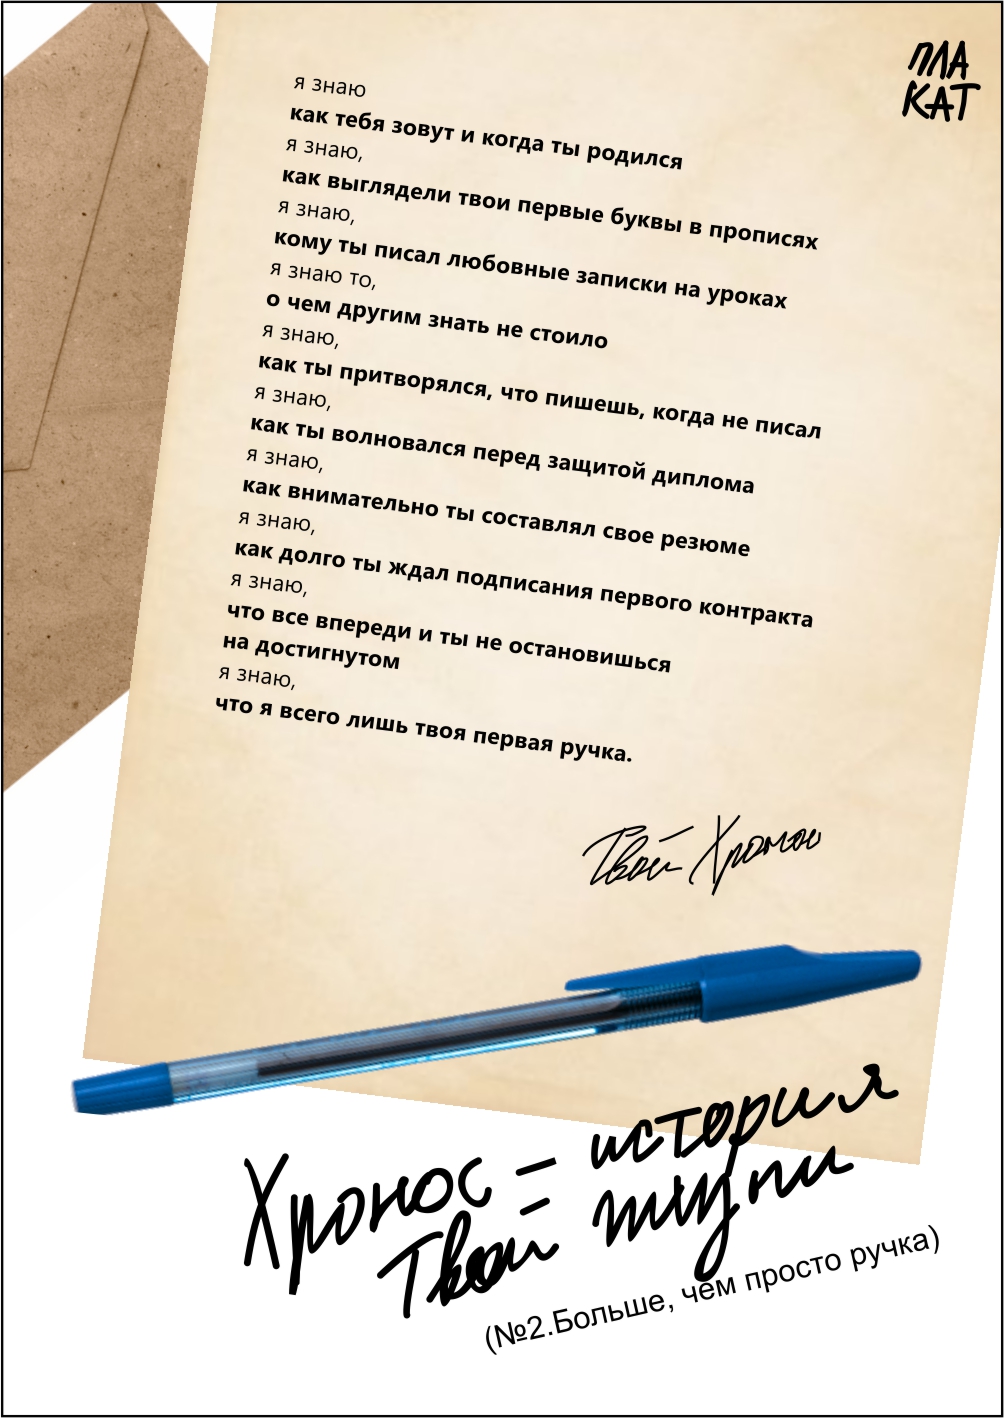 ПЛА
КАТ
я знаю
как тебя зовут и когда ты родился
я знаю,
как выглядели твои первые буквы в прописях
я знаю,
кому ты писал любовные записки на уроках
я знаю то,
о чем другим знать не стоило
я знаю,
как ты притворялся, что пишешь, когда не писал
я знаю,
как ты волновался перед защитой диплома
я знаю,
как внимательно ты составлял свое резюме
я знаю,
как долго ты ждал подписания первого контракта
я знаю,
что все впереди и ты не остановишься
на достигнутом
я знаю,
что я всего лишь твоя первая ручка.
Твой Хронос
Хронос = история
Твой = жизни
(№2.Больше, чем просто ручка)